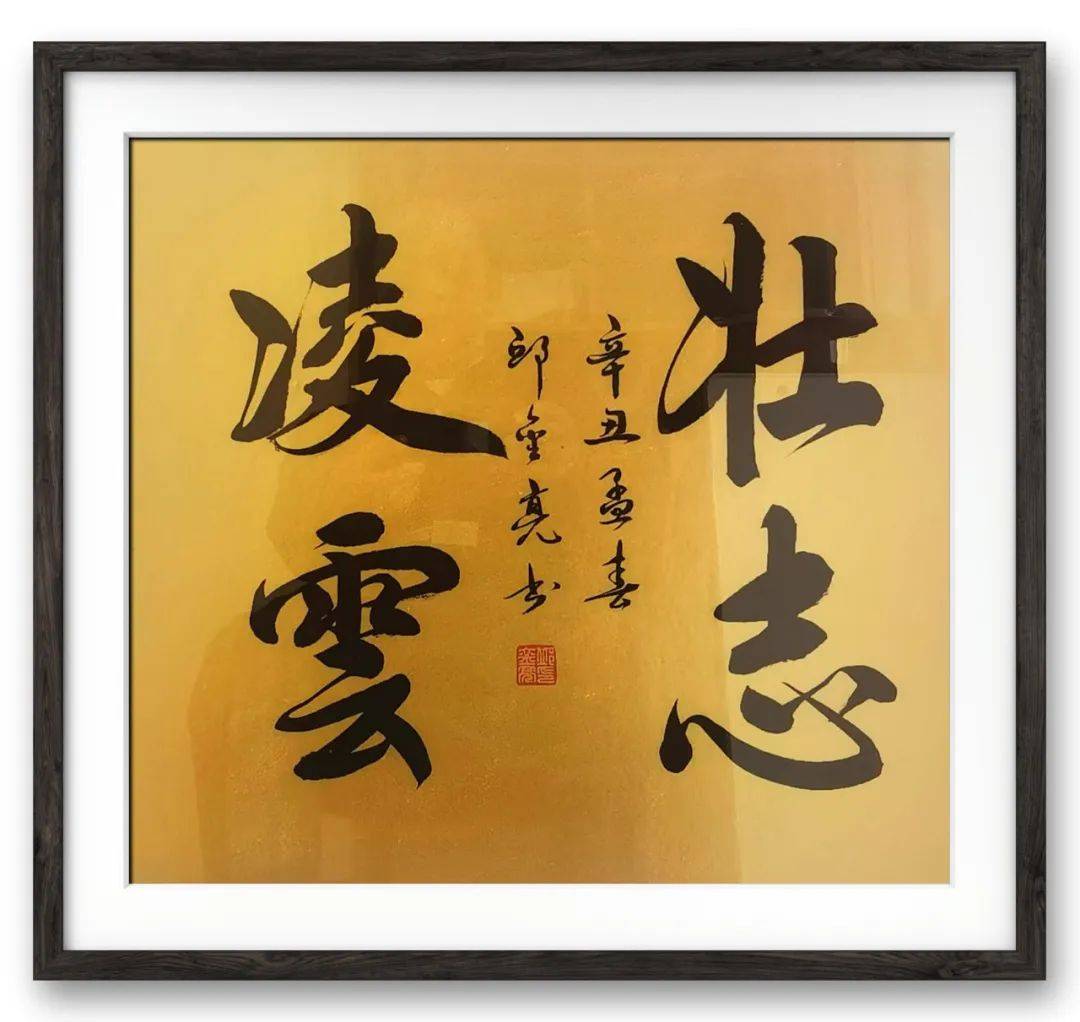 壮志
凌雲
辛丑孟春
邱金亮书